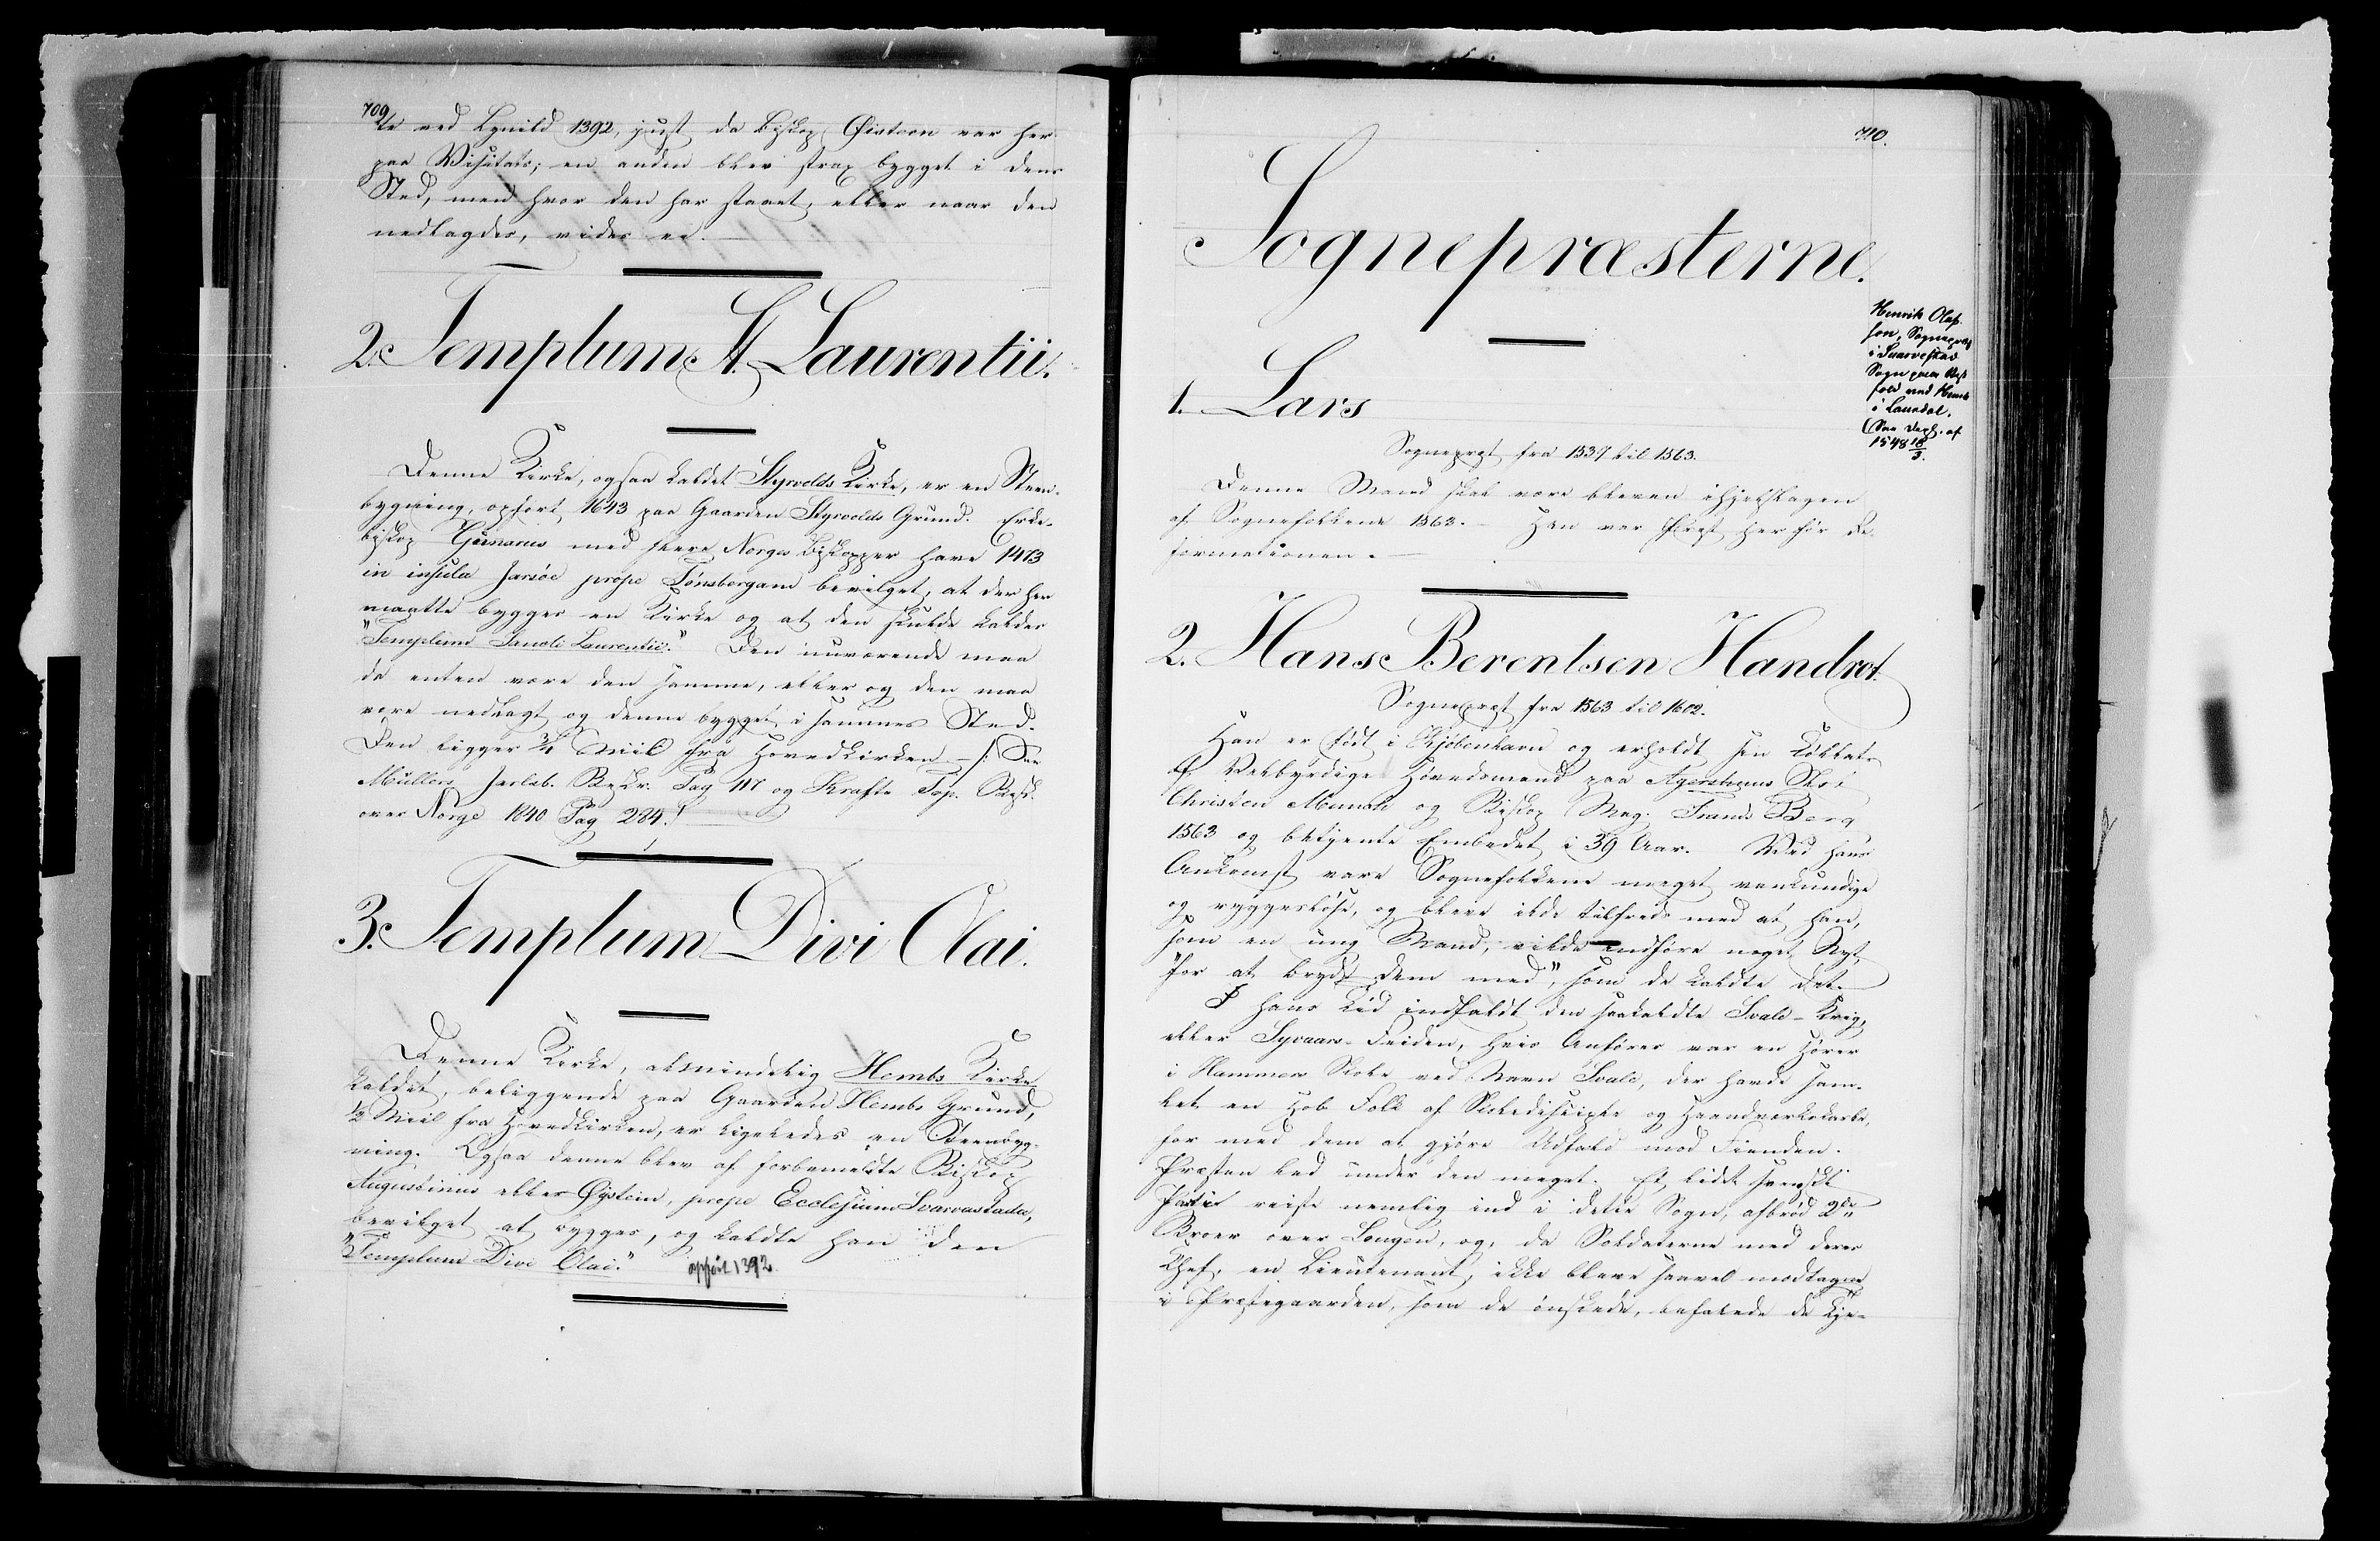 709
te ved Lynild 1392, just da Biskop Øisteen var her
paa Visitats; en anden blev strax bygget i dens
Sted, men hvor den har staaet, eller naar den
nedlagdes, vides ei. —
2. Templum St. Laurentii.
Denne Kirke, ogsaa kaldet Styrvolds Kirke, er en Steen-
bygning, opført 1643 paa Gaarden Styrvolds Grund. Erke-
biskop Gunarus med flere Norges Biskopper have 1473
in insula Jarsöe prope Tønsbergam bevilget, at der her
maatte bygges en Kirke og at den skulde kaldes
"Templum Sancti Laurentii." Den nuværende maa
da enten være den samme, eller og den maa
være nedlagt og denne bygget i sammes Sted.
Den ligger 3/4 Miil fra Hovedkirken. — /: See
Müllers Jarlsb. Beskr. Pag 117 og Krafts Top. Besk.
over Norge 1840 Pag 284.
3. Templum Divi Olai.
Denne Kirke, almindelig Hembs Kirke
kaldet, beliggende paa Gaarden Hembs Grund,
1/2 Miil fra Hovedkirken, er ligeledes en Steenbyg-
ning. Ogsaa denne blev af forbemeldte Biskop
Augustinus eller Øystein, prope Ecclesiam Svarvastada,
bevilget at bygges, og kaldte han den
"Templum Divi Olai." opført 1392.
710.
Sognepræsterne.
Henrik Olafs
søn, Sognepræst
i Svarvestad
Sogn paa Vest
fold ved Hemb
i Laurdal.
(See Dipl. af
1548 18/3.
1. Lars
Sognepræst fra 1537 til 1563.
Denne Mand skal være bleven ihjelslagen
af Sognefolkene 1563. — Han var Præst her før Re-
formationen. —
2. Hans Berentsen Handrot.
Sognepræst fra 1563 til 1602.
Han er født i Kjöbenhavn og erholdt sin Kollats
af Velbyrdige Høvedsmand paa Agershuus Slot
Christen Munch og Biskop Mag. Frands Berg
1563 og betjente Embedet i 39 Aar. Ved hans
Ankomst vare Sognefolkene meget vankundige
og ryggesløse, og bleve ilde tilfreds med at han,
som en ung Mand, vilde indføre noget Nyt,
"for at bryde dem med", som de kaldte det.
I hans Tid indfaldt den saakaldte Svale-Krig,
eller Syvaars-Feiden, hvis Anfører var en Hører
i Hammers Skole ved Navn Svale, der havde sam-
let en Hob Folk af Skoledisciple og Haandværksdrenge,
for med dem at gjøre Udfald mod Fienden.
Præsten led under den meget. Et lidet svenskt
Parti reiste nemlig ind i dette Sogn, afbrød 2de
Broer over Lougen, og, da Soldaterne med deres
Chef, en Lieutenant, ikke bleve saavel modtagne
i Præstegaarden, som de ønskede, befalede de Kje-